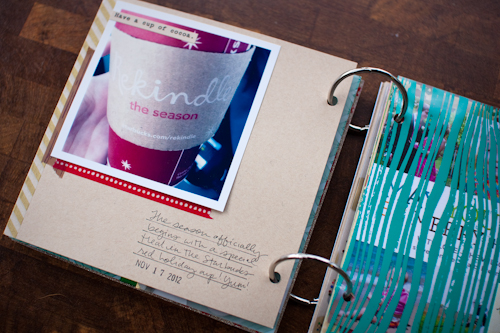 Have a cup of cocoa.
rekindle
the season
The season officially
begins with a special
treat in the Starbucks
red holiday cup! Yum!
NOV 17 2012